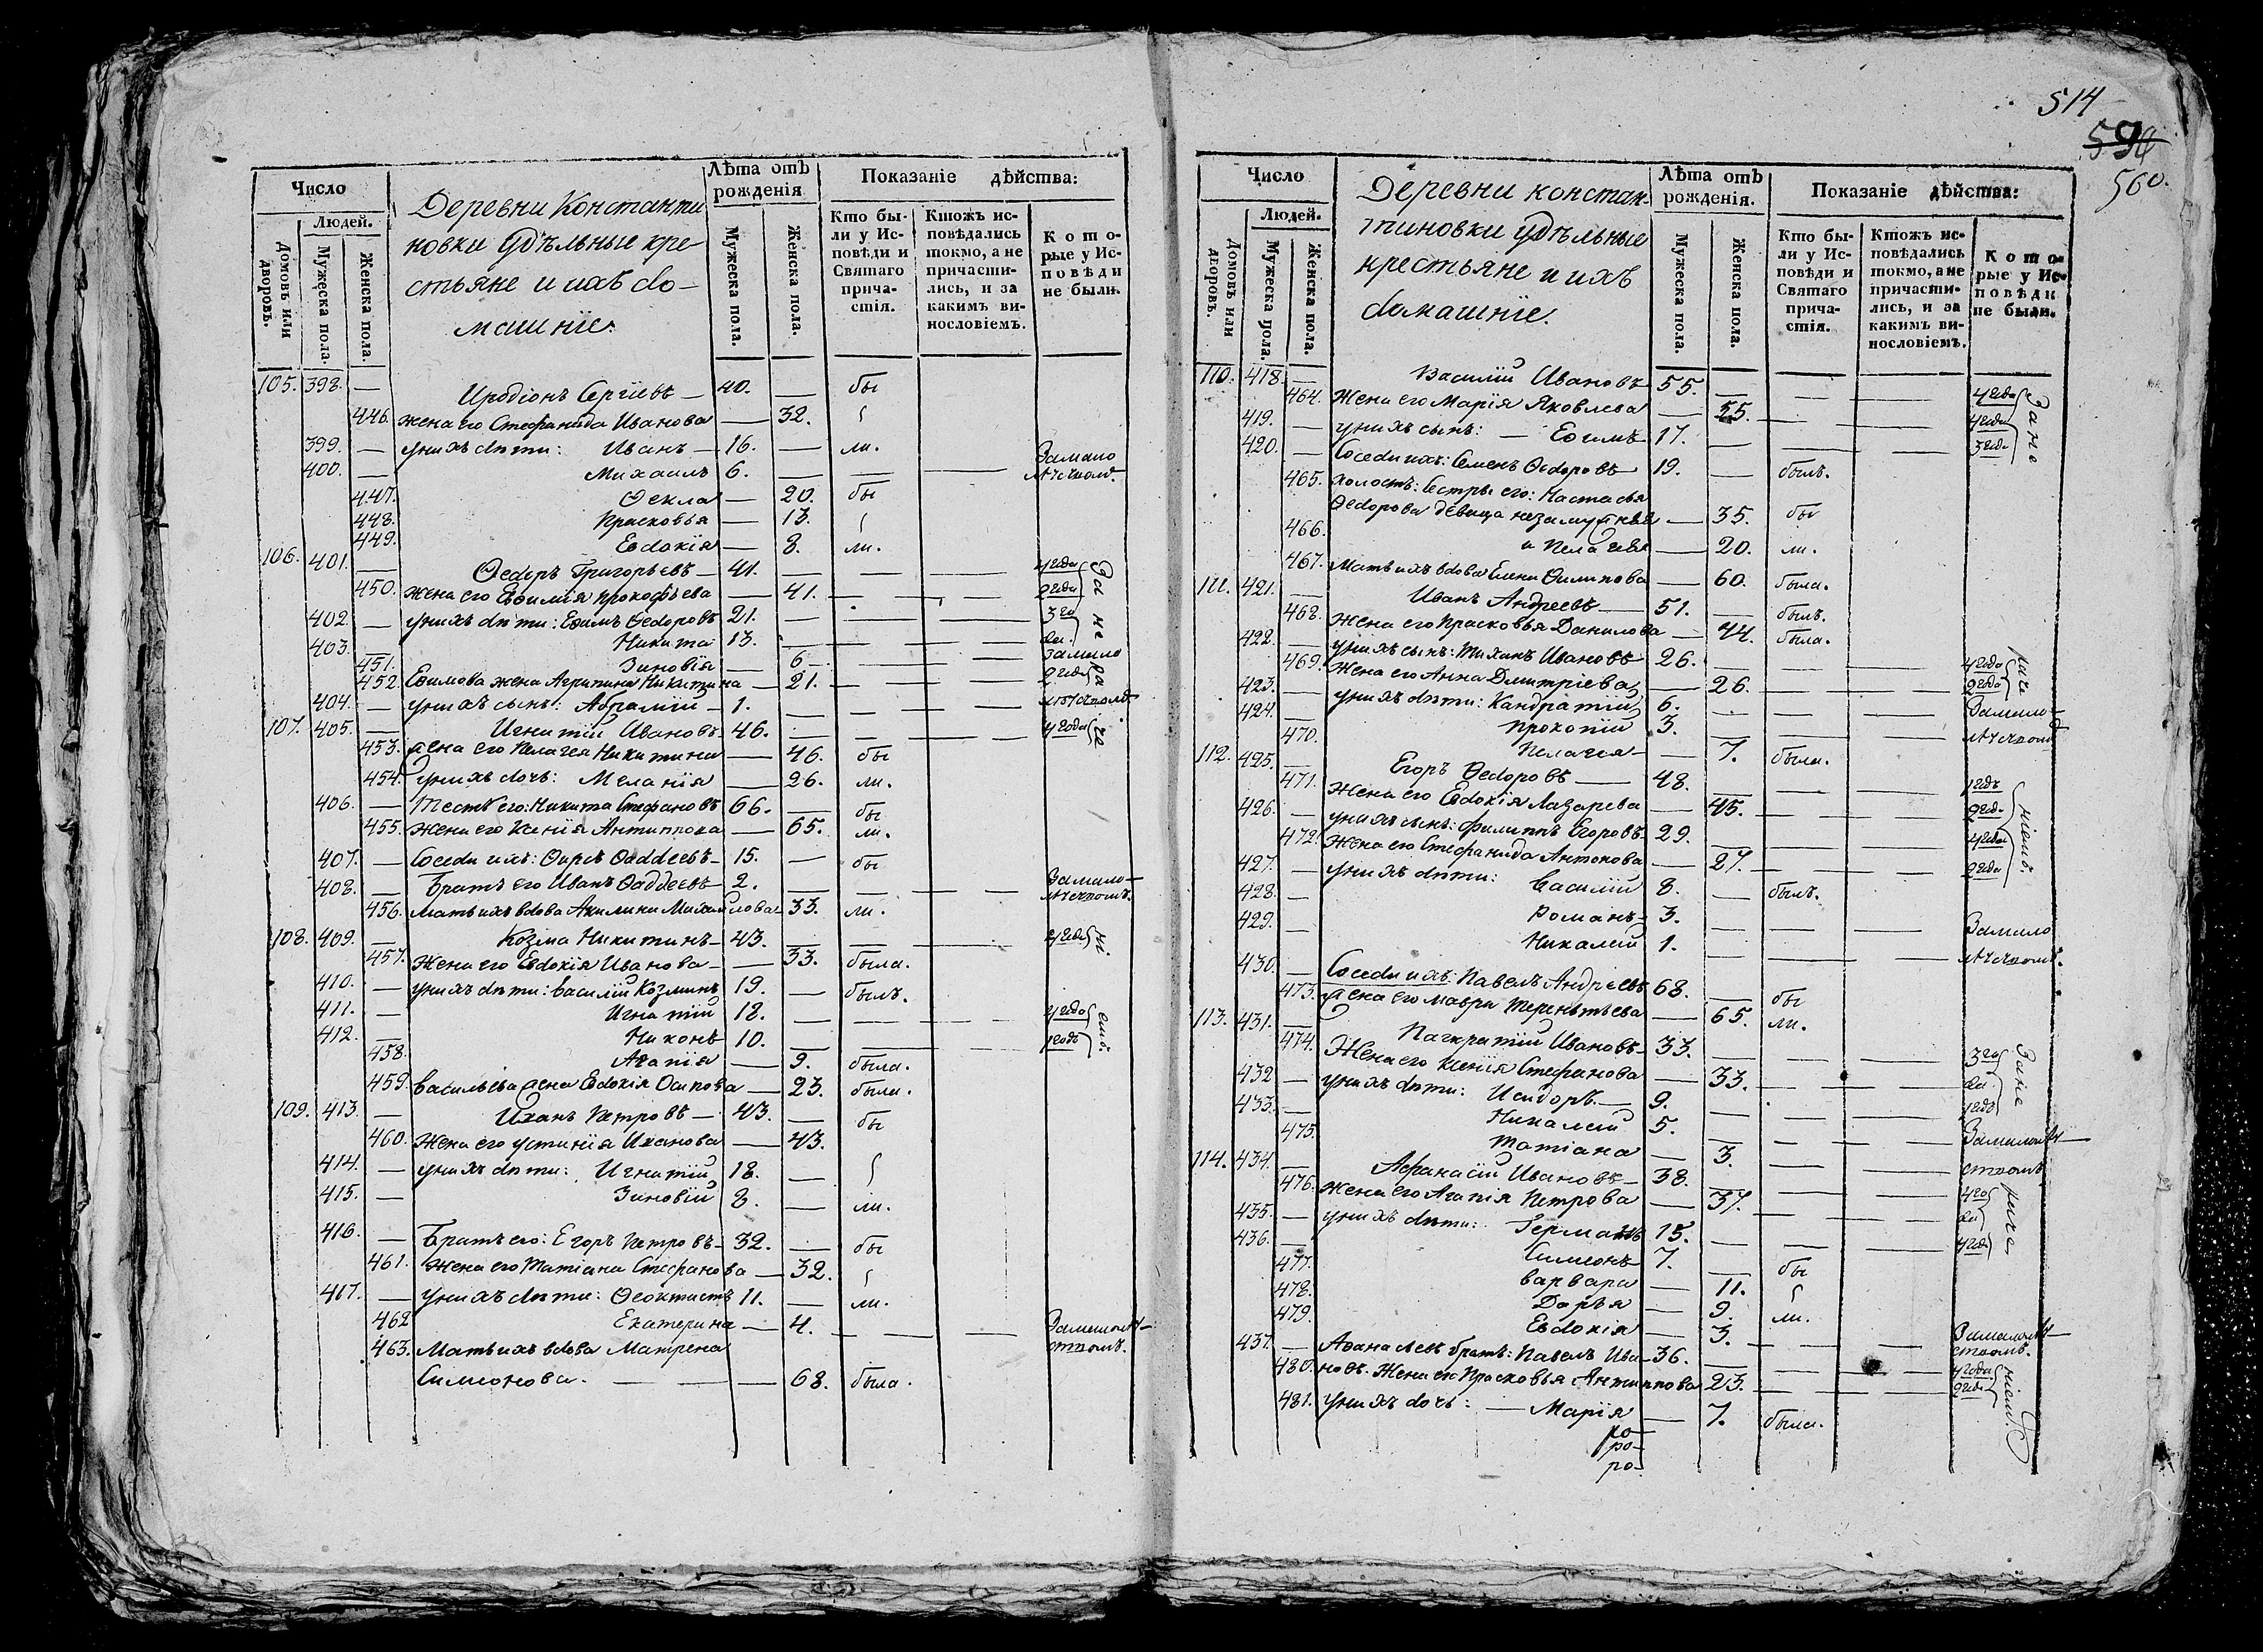 514
590
560.
Число
Людей.
Домовъ или дворовъ.
Мужеска пола.
Женска пола.
Деревни Константи
новки Удѣльные кре-
стьяне и ихъ до-
машніе.
Лѣта отъ рожденія
Мужеска пола.
Женска пола.
Показаніе дѣйства:
Кто бы-
ли у Ис-
повѣди и
Святаго
прича-
стія.
Ктожъ ис-
повѣдались
токмо, а не
причасти-
лись, и за
какимъ ви-
нословіемъ.
Кото-
рые у Ис-
повѣди
не были.
105. 398. — Иродіонъ Сергіевъ — 40. — бы
446. жена его Стефанида Иванова — 32.
399. — у нихъ дѣти: Иванъ — 16. — ли.
400. — Михаилъ 6. — — — За мало
лѣтством.
447. Ѳекла — 20. бы
448. Прасковья — 13.
449. Евдокія — 8. ли.
106. 401. — Ѳедоръ Григорьевъ — 41. — — — 4 года
450. жена его Евѳимія Прокофьева — 41. — — 2 года
402. — у нихъ дѣти: Ефимъ Ѳедоровъ 21. — — — 3 го
403. Никита 13. — — — да.
451. Зиновія — 6 — — — За мало
452. Ефимова жена Агрипина Никитина — 21. — — — 2 года
404. — у нихъ сынъ: Абрамій — 1. — — — лѣтством
107. 405. — Игнатій Ивановъ 46. — — — 4 года
453. жена его Пелагея Никитина — 46. бы
454. у нихъ дочь: Меланія — 26. ли.
406. — Тесть его: Никита Стефановъ 66. — бы
455. жена его Ксенія Антиппова — 65. ли.
407. — Соседи ихъ: Ѳирсъ Ѳаддеевъ — 15. — бы
408. — Братъ его Иванъ Ѳаддеевъ — 2. — — — За мало-
лѣтством.
456. мать ихъ вдова Акилина Михайлова — 33. ли.
108. 409. — Козма Никитинъ — 43. — — — 4 года
457. Жена его Евдокія Иванова — 33. была.
410. — у нихъ дѣти: Василій Козминъ 19. — былъ.
411. — Игнатій 12. — — — 4 года
412. — Никонъ 10. — — — 1 годъ
458. Агапія — 9. была.
459. Васильева жена Евдокія Осипова — 23. была.
109. 413. — Иванъ Петровъ — 43. — бы
460. Жена его Устинія Иванова — 43.
414. — у нихъ дѣти: Игнатій 18. —
415. — Зиновій 8. — ли.
416. — Братъ его: Егоръ Петровъ — 32. — бы
461. Жена его Татіана Стефанова — 32.
417. — у нихъ дѣти: Ѳеоктистъ 11. — ли.
462 Екатерина — 4. — — —
463. Мать ихъ вдова Матрена
Симионова. — — — 68. была.
Зане
ра
че
ні
емъ.
Число
Людей.
Домовъ или дворовъ.
Мужеска пола.
Женска пола.
Деревни констан-
тиновки удѣльные
крестьяне и ихъ
домашніе.
Лѣта отъ рожденія.
Мужеска пола.
Женска пола.
Показаніе дѣйства:
Кто бы-
ли у Ис-
повѣди и
Святаго
прича-
стія.
Ктожъ ис-
повѣдались
токмо, а не
причасти-
лись, и за
какимъ ви-
нословіемъ.
Кото-
рые у Ис-
повѣди
не были.
110. 418. — Василій Ивановъ 55. — — — 4 года
464. Жена его Марія Яковлева — 55. — — 4 года
419. — у нихъ сынъ: — Ефимъ 17. — — — 3 года
420. — Соседи ихъ: Семенъ Ѳедоровъ — 19. — былъ.
465. холостъ: Сестры его: Настасья
Ѳедорова девица незамужняя — 35. бы
466. и Пелагея — 20. ли.
467. Мать ихъ вдова Елена Филипова — 60. была.
111. 421. — Иванъ Андреевъ — 51. — былъ.
468. Жена его Прасковья Данилова — 44. была.
422. — у нихъ сынъ: Тихонъ Ивановъ — 26. — — — 4 года
469. Жена его Анна Дмитріева — 26. — — — 2 года
423. — у нихъ дѣти: Кандратій 6. — — — За мало-
424. — Прокопій 3. — — — лѣтством
470. Пелагея — 7. была.
112. 425. — Егоръ Ѳедоровъ — 48. — — — 1 годъ
471. Жена его Евдокія Лазарева — 45. — — — 2 года
426. — у нихъ сынъ: Филиппъ Егоровъ — 29. — — — 4 года
472. Жена его Стефанида Антонова — 27. — — — 2 года
427. — у нихъ дѣти: Василій 8. — былъ.
428. — Романъ — 3. — — — За мало
429. — Николай 1. — — — лѣтством.
430. — Соседи ихъ: Павелъ Андреевъ 68. — бы
473. Жена его Мавра Терентьева — 65. ли.
113. 431. — Панкратій Ивановъ — 33. — — — 3 го
474. Жена его Ксенія Стефанова — 33. — — — да.
432 — у нихъ дѣти: Исидоръ — 9. — — — 1 годъ
433. — Николай 5. — — —
475. Татіана — 3. — — —
114. 434. — Афанасій Ивановъ — 38. — — — 4 го
476. жена его Агапія Петрова — 37. — — — да
435. — у нихъ дѣти: Германъ 15. — — — 4 года
436. — Симионъ 7. — бы
477. Варвара — 11.
478. Дарья — 9. ли.
479. Евдокія — 3. — — —
437. — Афанасьевъ братъ: Павелъ Ива- 36. — — — 4 года
480. новъ. Жена его Прасковья Антиппова 23. — — — 2 года
481. у нихъ дочь: — Марія — 7. была.
Зане
раче
ніемъ.
Зане
раче
ніемъ.
ро-
ро-
ро-